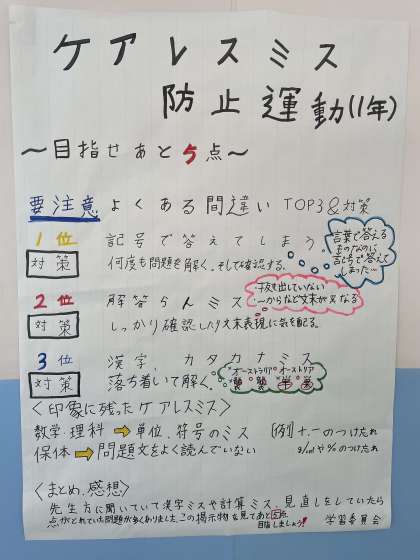 ケアレスミス
防止運動(1年)
〜目指せあと5点〜
要注意 よくある間違い TOP3&対策
1位 記号で答えてしまう。
言葉で答える
ものなのに
記号で答えて
しまった…
対策 何度も問題を解く。そして確認する。
2位 解答らんミス
抜き出していない
〜からなど文末が異なる
対策 しっかり確認したり文末表現に気を配る。
3位 漢字、カタカナミス
オーストラリア オーストリア
対策 落ち着いて解く。
〈印象に残ったケアレスミス〉
数学・理科 → 単位、符号のミス [例]+,-のつけ忘れ
保体 → 問題文をよく読んでいない g/㎤や%のつけ忘れ
〈まとめ、感想〉
先生方に聞いていて漢字ミスや計算ミス、見直しをしていたら
点がとれていた問題が多くありました。この掲示物を見てあと5点
目指しましょう!
学習委員会